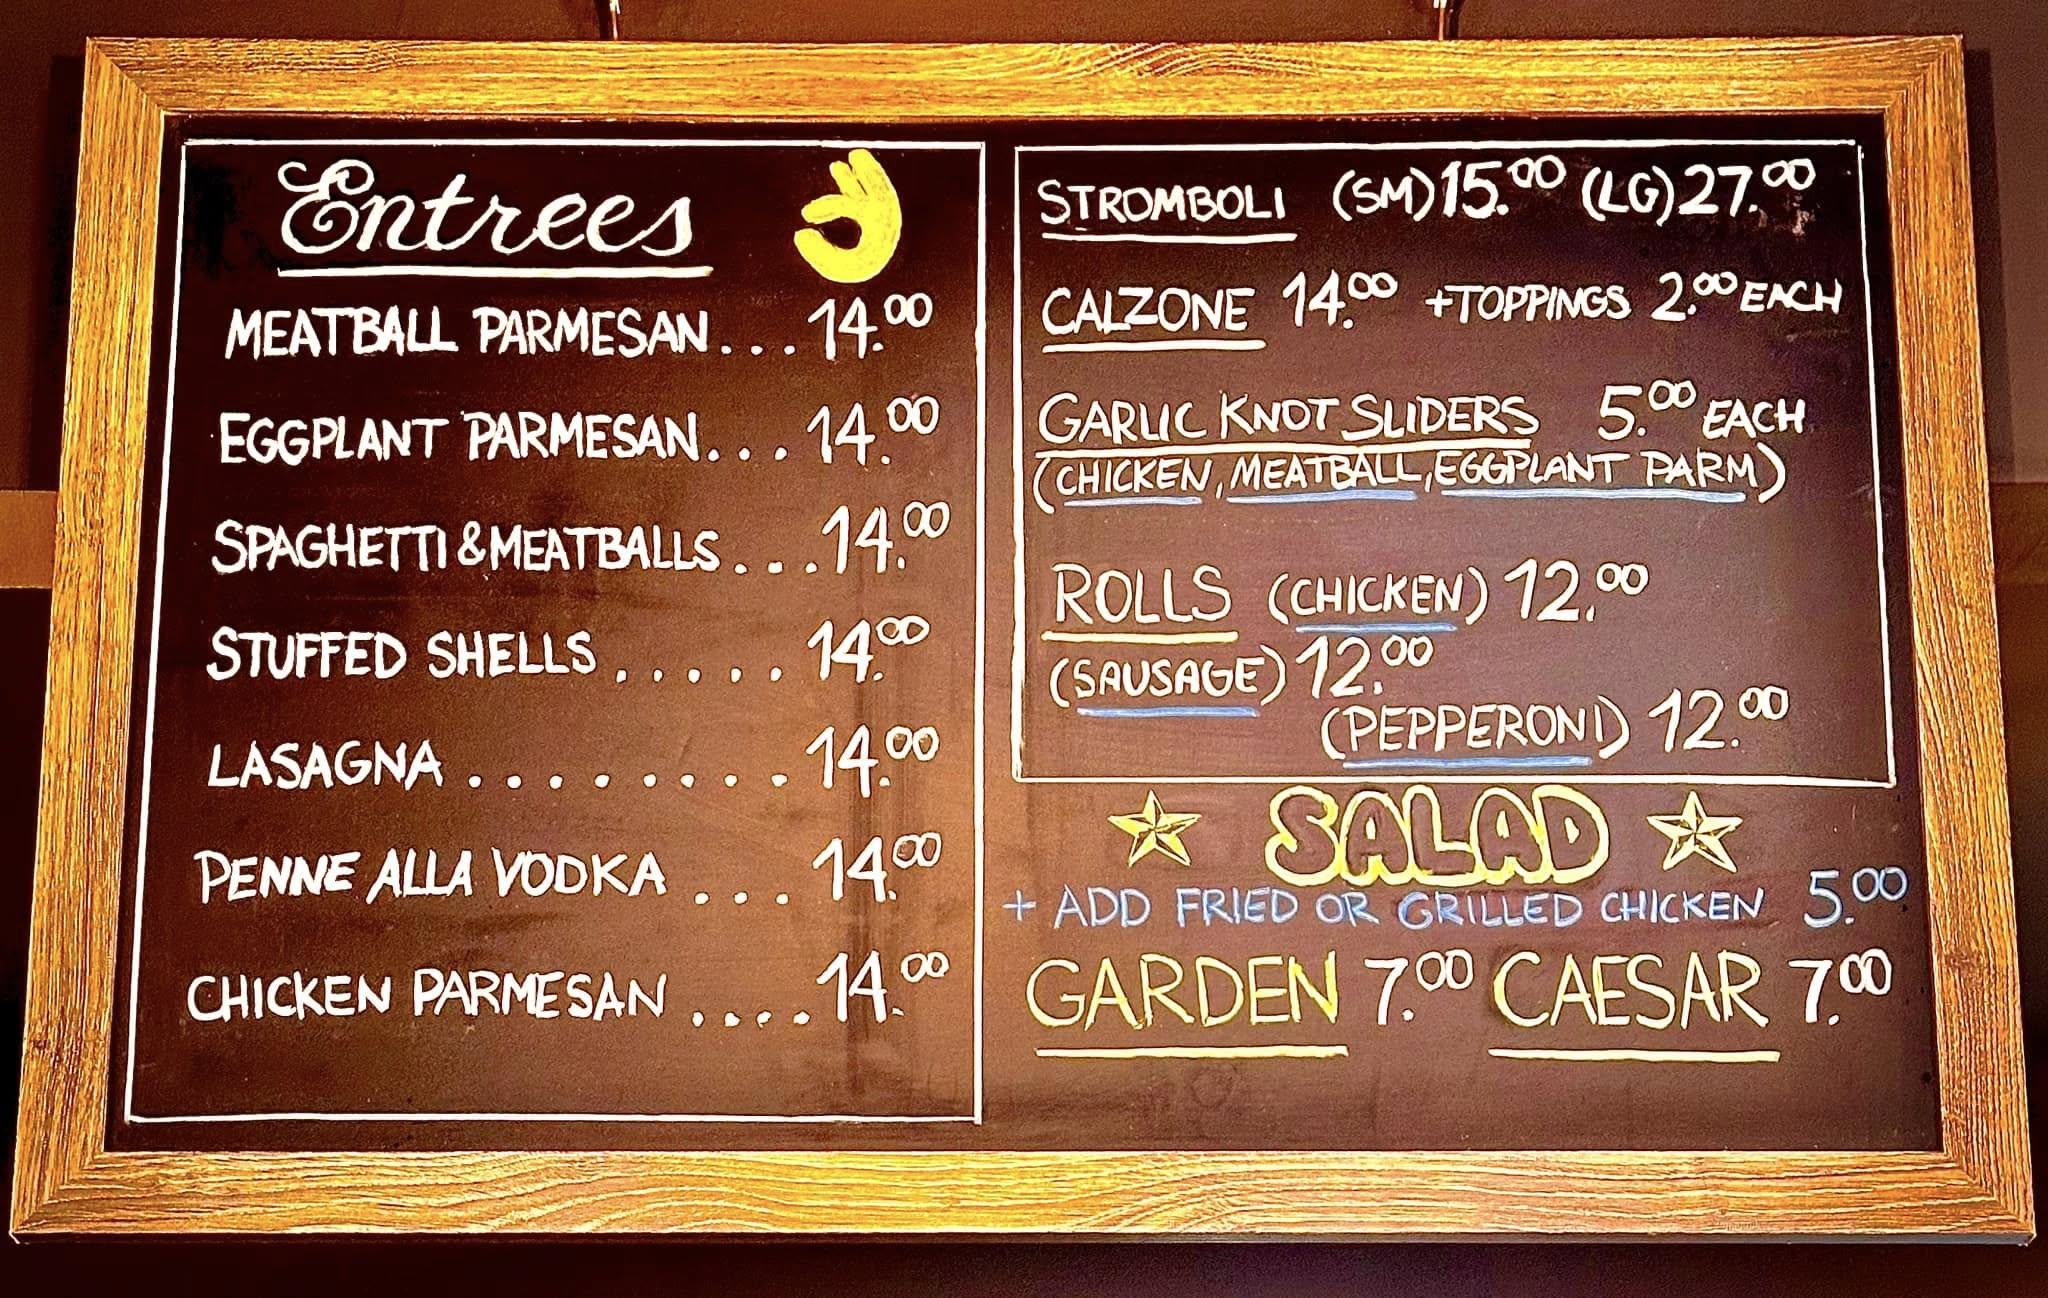 Entrees
MEATBALL PARMESAN...14.00
EGGPLANT PARMESAN...14.00
SPAGHETTI & MEATBALLS...14.00
STUFFED SHELLS.....14.00
LASAGNA........14.00
PENNE ALLA VODKA...14.00
CHICKEN PARMESAN....14.00
STROMBOLI (SM) 15.00 (LG) 27.00
CALZONE 14.00 +TOPPINGS 2.00 EACH
GARLIC KNOT SLIDERS 5.00 EACH
(CHICKEN, MEATBALL, EGGPLANT PARM)
ROLLS (CHICKEN) 12.00
(SAUSAGE) 12.00
(PEPPERONI) 12.00
SALAD
+ ADD FRIED OR GRILLED CHICKEN 5.00
GARDEN 7.00 CAESAR 7.00